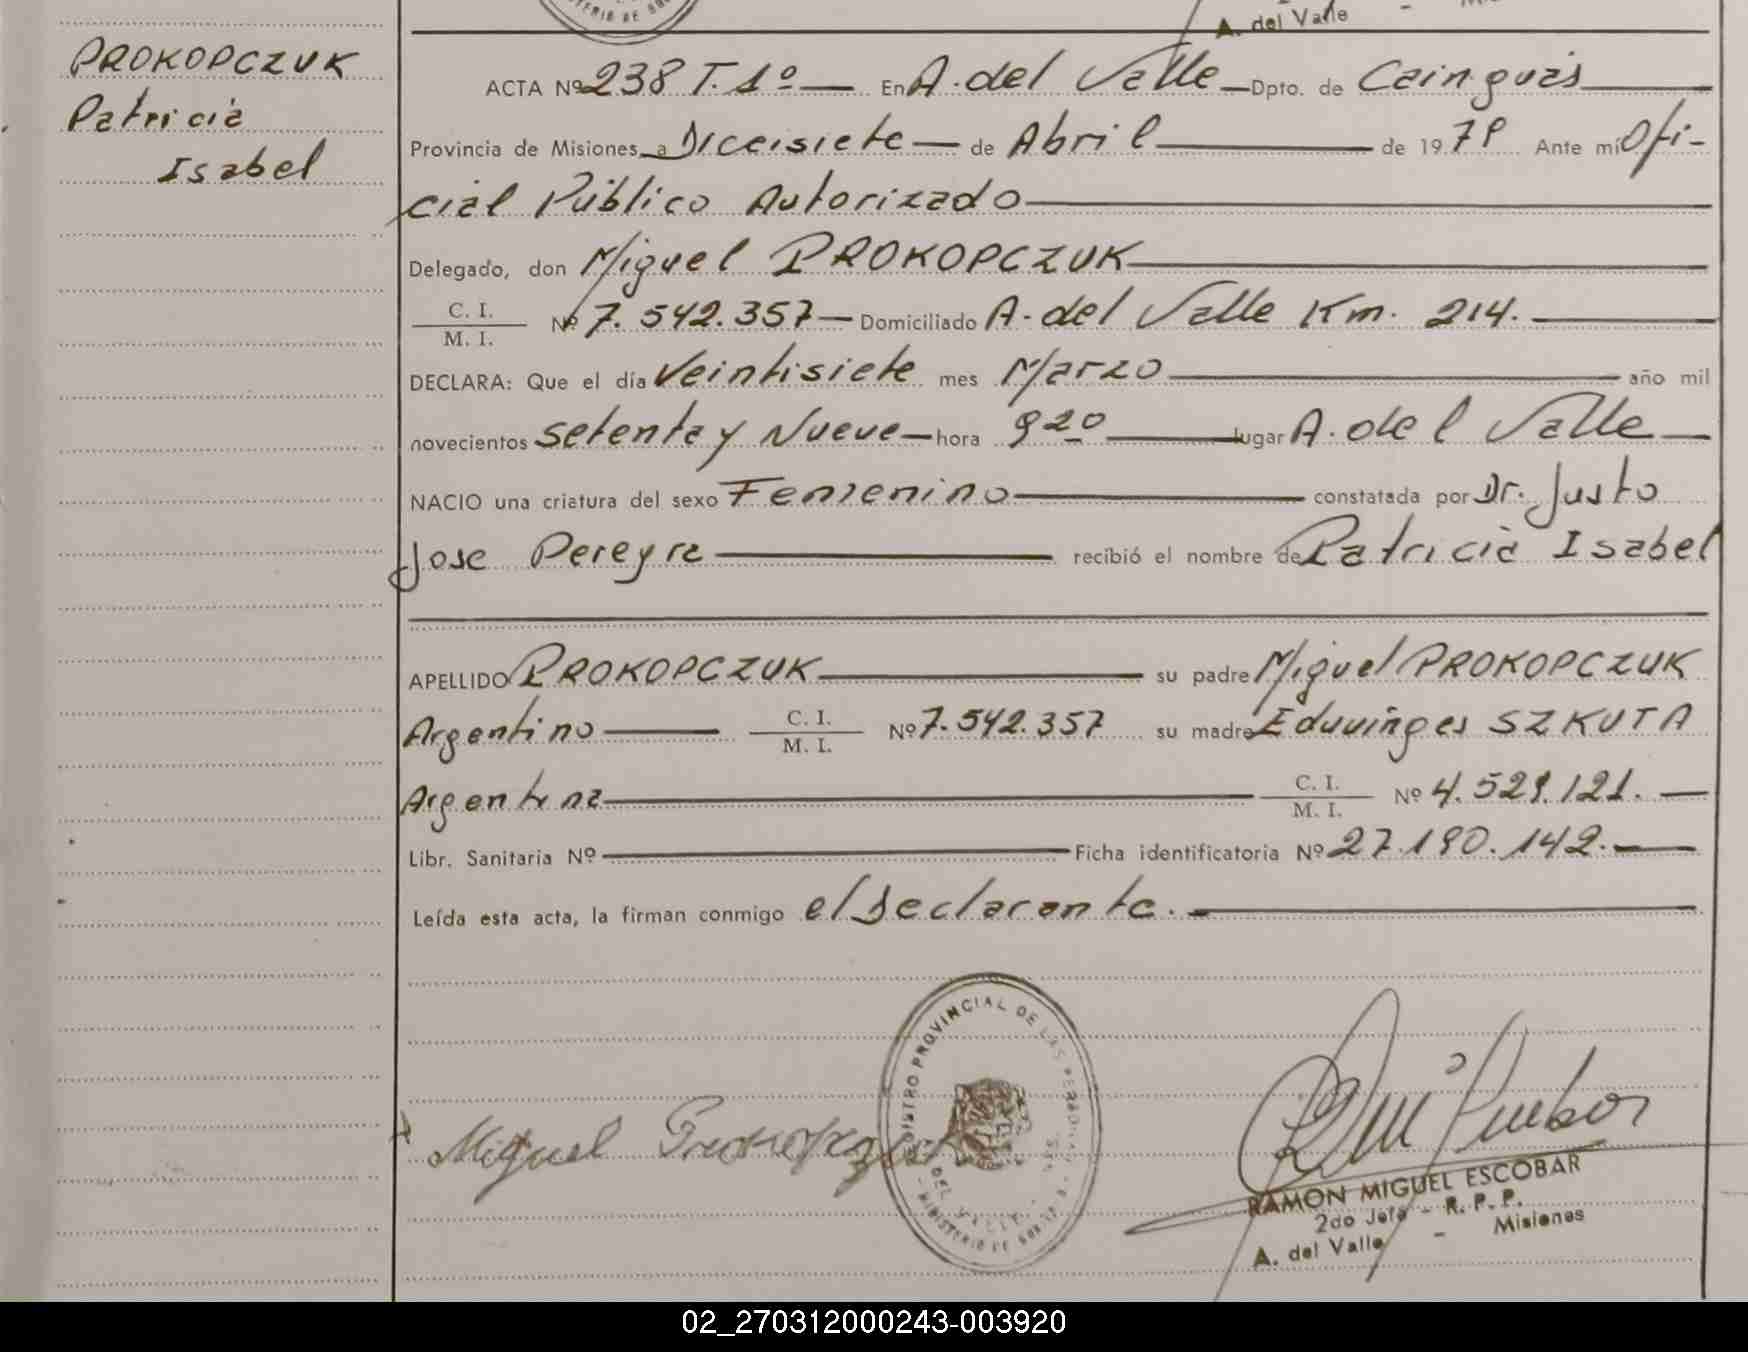 A. del Valle -
PROKOPCZUK
Patricia
Isabel
ACTA Nº 238 T. 1º — En A. del Valle — Dpto. de Cainguás
Provincia de Misiones a Dieceisiete — de Abril — de 1979 Ante mí Ofi-
cial Público Autorizado
Delegado, don Miguel PROKOPCZUK
C. I. / M. I. Nº 7.542.357 — Domiciliado A. del Valle Km. 214.
DECLARA: Que el día Veintisiete mes Marzo — año mil
novecientos setenta y Nueve — hora 9 20 — lugar A. del Valle —
NACIO una criatura del sexo Femenino — constatada por Dr. Justo
Jose Pereyra — recibió el nombre de Patricia Isabel
APELLIDO PROKOPCZUK — su padre Miguel PROKOPCZUK
Argentino — C. I. / M. I. Nº 7.542.357 su madre Eduvinges SZKUTA
Argentina — C. I. / M. I. Nº 4.529.121. —
Libr. Sanitaria Nº — Ficha identificatoria Nº 27.190.142. —
Leída esta acta, la firman conmigo el Declarante. —
Miguel Prokopczuk
REGISTRO PROVINCIAL DE LAS PERSONAS
DEL VALLE
MINISTERIO DE GOB.
RAMON MIGUEL ESCOBAR
2do Jefe - R. P. P.
A. del Valle - Misiones
02_270312000243-003920